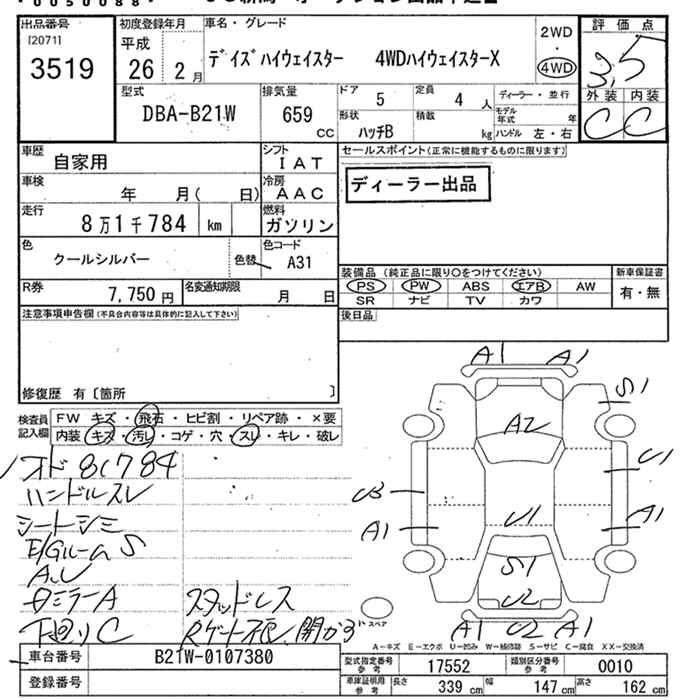 出品番号 初度登録年月 車名・グレード 評価点
[20711]
3519
平成 26 2 月
デイズハイウェイスター 4WDハイウェイスターX
2WD
・
4WD
3,5
外装 内装
C C
型式 排気量 ドア 定員 ディーラー・並行
DBA-B21W 659 cc 5 4 人
形状 積載 モデル年式 年
ハッチB kg ハンドル 左・右
車歴 シフト セールスポイント(正常に機能するものに限ります)
自家用 IAT
ディーラー出品
車検 冷房
年 月( 日) AAC
走行 燃料
8万1千784 km ガソリン
色 色コード
クールシルバー 色替 A31
装備品(純正品に限り○をつけてください) 新車保証書
PS PW ABS エアB AW 有・無
SR ナビ TV カワ
R券 名変通知期限
7,750円 月 日
注意事項申告欄(不具合内容等は具体的に記入して下さい) 後日品
修復歴 有〔箇所 〕
検査員 FW キズ・飛石・ヒビ割・リペア跡・×要
記入欄 内装 キズ・汚レ・コゲ・穴・スレ・キレ・破レ
オド81784
ハンドルスレ
シートシミ
E/Gルーム S
下廻りC
スタッドレス
A1 A1
S1
A2
U1
U3
A1 U1 A1
S1
U2
A1 U2 A1
スペア
A-キズ E-エクボ U-凹み W-補修跡 S-サビ C-腐食 XX-交換済
車台番号 B21W-0107380
登録番号
型式指定番号 参考 17552 類別区分番号 参考 0010
車庫証明用 参考 長さ 339 cm 幅 147 cm 高さ 162 cm